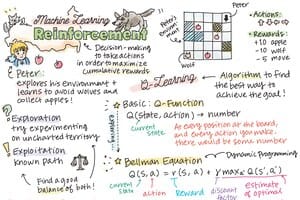 Machine Learning
Reinforcement
Decision-making
to take actions
in order to maximize
cumulative rewards
Peter:
explores his environment +
learns to avoid wolves and
collect apples!
Peter
Peter's
Environment
Wolf
Actions:
Rewards:
+10 apple
-10 wolf
-5 move
Q-Learning
Algorithm to find
the best way to
achieve the goal!
Exploration
try experimenting
on uncharted territory
Exploitation
known path
Find a good
balance of both!
Basic: Q-Function
Q(state, action) → number
current
state
At every position at the board,
and every action you make.
there would be some number
Bellman Equation
Dynamic Programming
Q(s, a) = r(s, a) + γ max Q(s', a')
current
state
action
Reward
discount
factor
estimate
of optimal